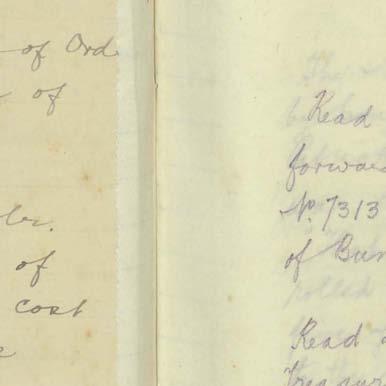 of Ord
of
of
cost
Read
forward
No. 7313
of Bur
Read
Treasur